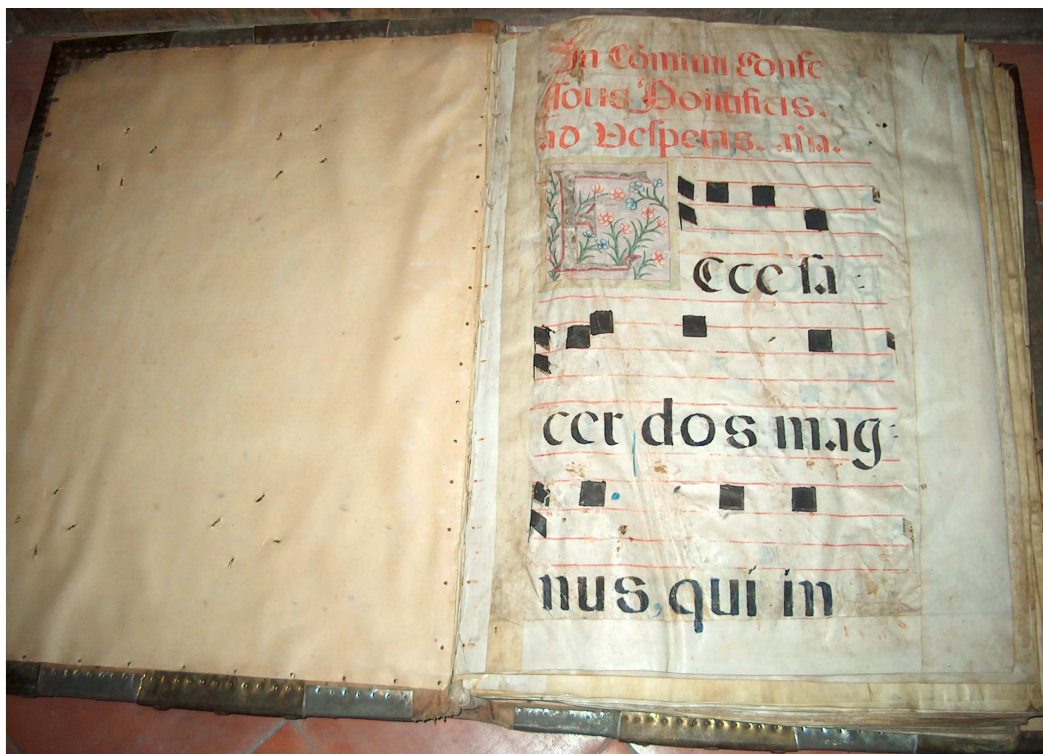 In Cōmuni Confe
ssoris Pontificis.
ad Vesperas. aña.
Ecce sa
cer dos mag
nus, qui in